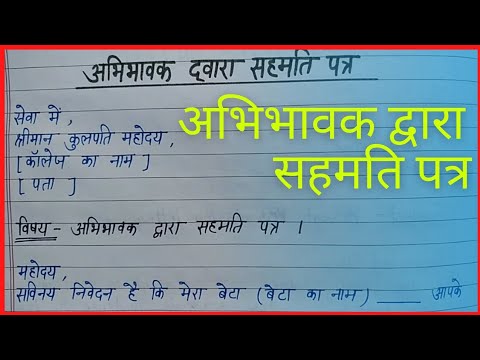 अभिभावक द्वारा सहमति पत्र
सेवा में,
श्रीमान कुलपति महोदय,
[कॉलेज का नाम]
[पता]
अभिभावक द्वारा
सहमति पत्र
विषय - अभिभावक द्वारा सहमति पत्र ।
महोदय,
सविनय निवेदन है कि मेरा बेटा (बेटा का नाम) ____ आपके